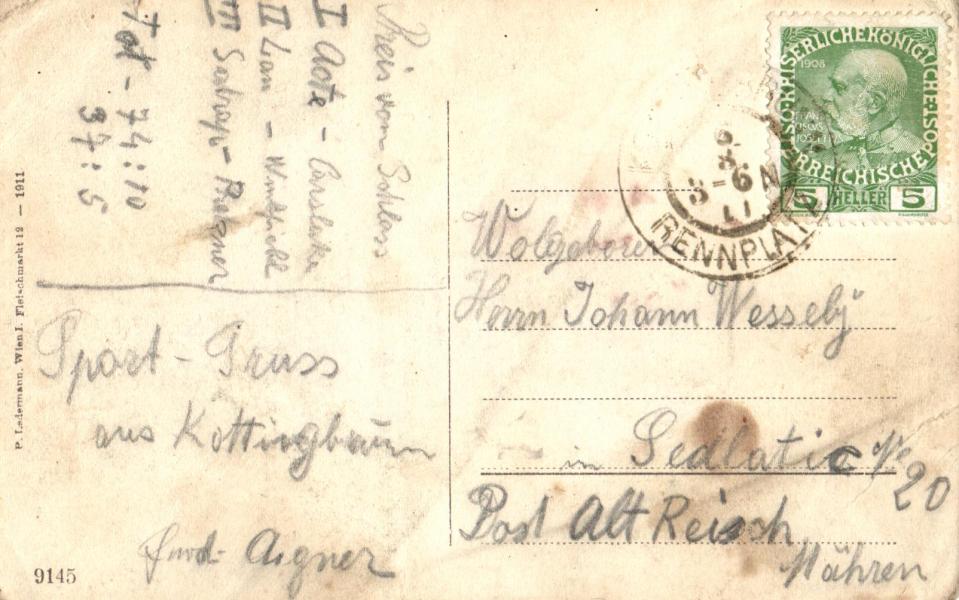 Preis vom Schloss
I Acte - Carslake
II Lam -
III Satrap -
Tot - 74:10
37:5
Sport - Gruss
aus Kottingbrunn
Aigner
9145
P. Ledermann, Wien I. Fleischmarkt 12 — 1911
KAISERLICHE KÖNIGLICHE ÖSTERREICHISCHE POST
1908
5 HELLER 5
3-6N
11
RENNPLATZ
Wolgeboren
Herrn Johann Wessely
in Sedlatic Nr
20
Post Alt Reisch
Mähren